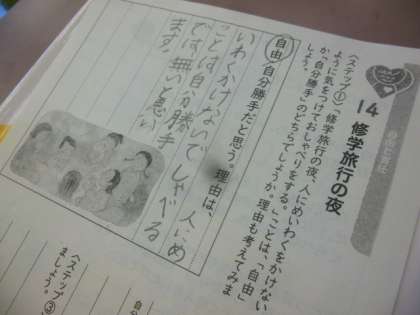 14 修学旅行の夜
〈ステップ①〉「修学旅行の夜、人にめいわくをかけない
ように気をつけておしゃべりをする。」ことは、「自由」
か「自分勝手」のどちらでしょうか。理由も考えてみま
しょう。
自由/自分勝手だと思う。理由は、
人にめ
いわくかけないでしゃべる
ことは自分勝手
では、無いと思い
ます。
自分
〈ステップ③
ましょう。